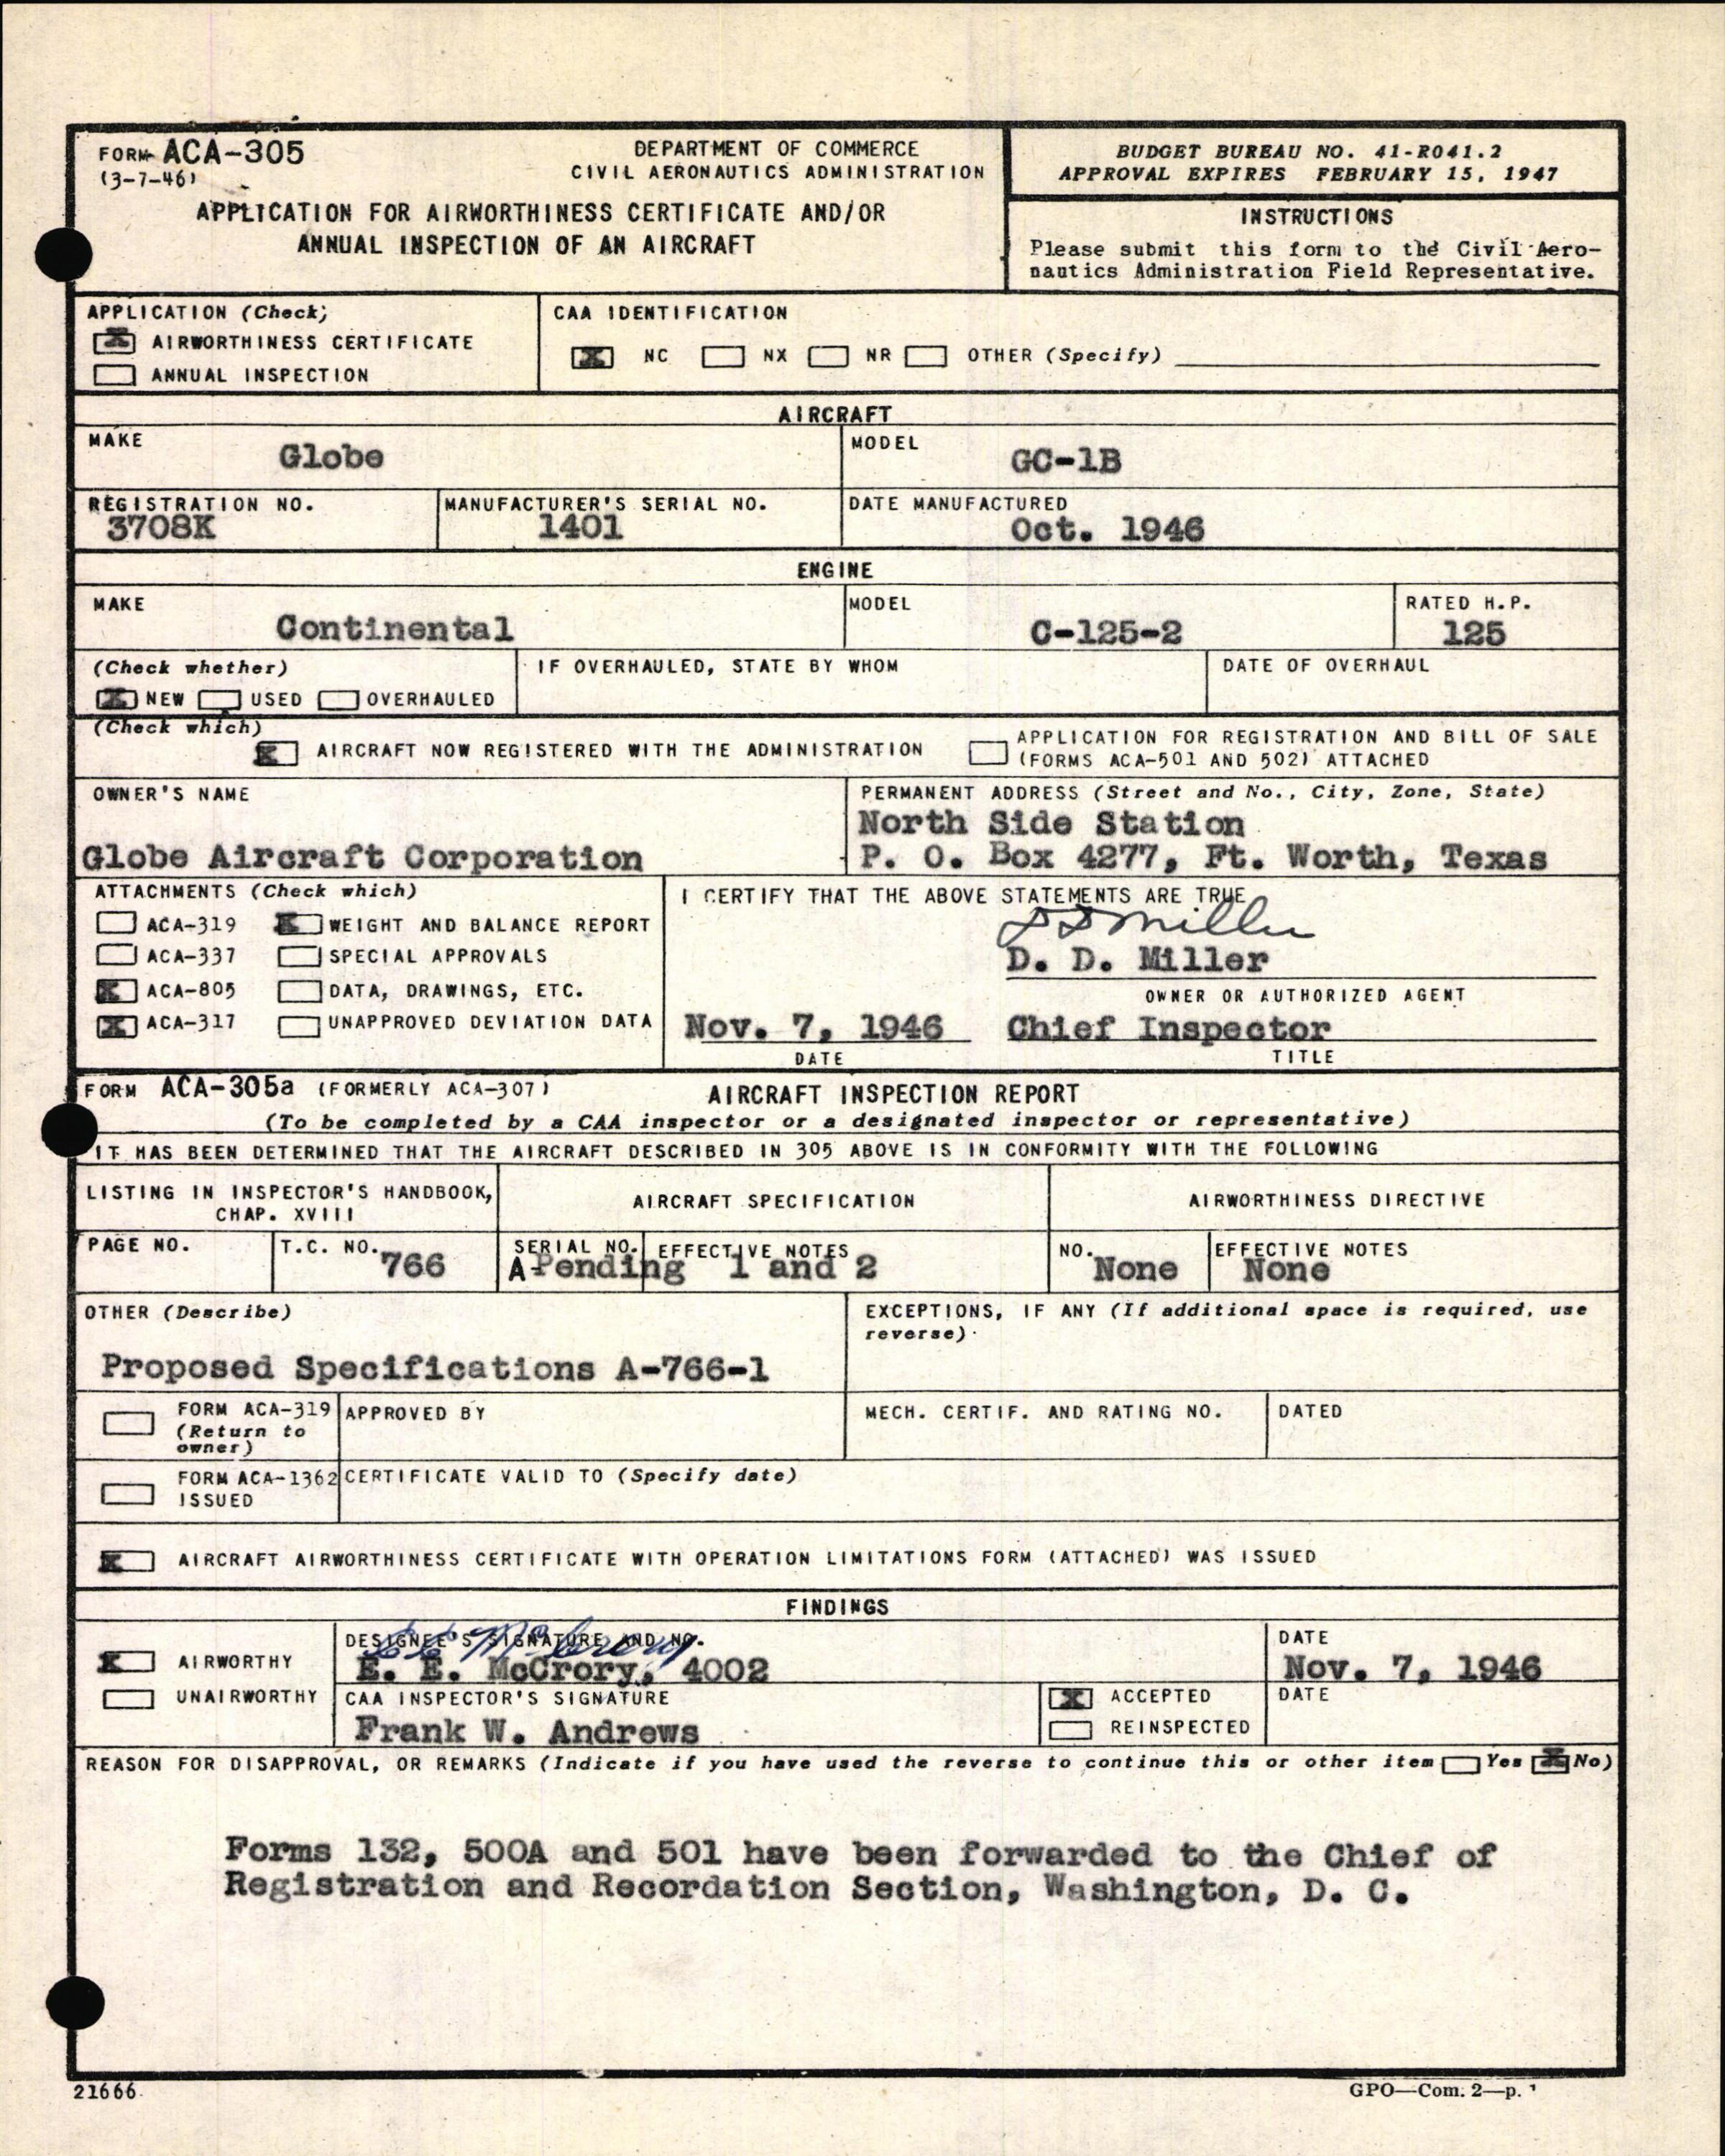 FORM ACA-305
(3-7-46)
DEPARTMENT OF COMMERCE
CIVIL AERONAUTICS ADMINISTRATION
APPLICATION FOR AIRWORTHINESS CERTIFICATE AND/OR
ANNUAL INSPECTION OF AN AIRCRAFT
BUDGET BUREAU NO. 41-R041.2
APPROVAL EXPIRES FEBRUARY 15, 1947
INSTRUCTIONS
Please submit this form to the Civil Aero-
nautics Administration Field Representative.
APPLICATION (Check)
X AIRWORTHINESS CERTIFICATE
ANNUAL INSPECTION
CAA IDENTIFICATION
X NC NX NR OTHER (Specify)
AIRCRAFT
MAKE
Globe
MODEL
GC-1B
REGISTRATION NO.
3708K
MANUFACTURER'S SERIAL NO.
1401
DATE MANUFACTURED
Oct. 1946
ENGINE
MAKE
Continental
MODEL
C-125-2
RATED H.P.
125
(Check whether)
X NEW USED OVERHAULED
IF OVERHAULED, STATE BY WHOM
DATE OF OVERHAUL
(Check which)
X AIRCRAFT NOW REGISTERED WITH THE ADMINISTRATION
APPLICATION FOR REGISTRATION AND BILL OF SALE
(FORMS ACA-501 AND 502) ATTACHED
OWNER'S NAME
Globe Aircraft Corporation
PERMANENT ADDRESS (Street and No., City, Zone, State)
North Side Station
P. O. Box 4277, Ft. Worth, Texas
ATTACHMENTS (Check which)
ACA-319 X WEIGHT AND BALANCE REPORT
ACA-337 SPECIAL APPROVALS
X ACA-805 DATA, DRAWINGS, ETC.
X ACA-317 UNAPPROVED DEVIATION DATA
I CERTIFY THAT THE ABOVE STATEMENTS ARE TRUE
D D Miller
D. D. Miller
OWNER OR AUTHORIZED AGENT
Nov. 7, 1946 Chief Inspector
DATE TITLE
FORM ACA-305a (FORMERLY ACA-307) AIRCRAFT INSPECTION REPORT
(To be completed by a CAA inspector or a designated inspector or representative)
IT HAS BEEN DETERMINED THAT THE AIRCRAFT DESCRIBED IN 305 ABOVE IS IN CONFORMITY WITH THE FOLLOWING
LISTING IN INSPECTOR'S HANDBOOK,
CHAP. XVIII
AIRCRAFT SPECIFICATION
AIRWORTHINESS DIRECTIVE
PAGE NO.
T.C. NO.
766
SERIAL NO. EFFECTIVE NOTES
A-Pending 1 and 2
NO.
None
EFFECTIVE NOTES
None
OTHER (Describe)
Proposed Specifications A-766-1
EXCEPTIONS, IF ANY (If additional space is required, use
reverse)
FORM ACA-319
(Return to
owner)
APPROVED BY
MECH. CERTIF. AND RATING NO.
DATED
FORM ACA-1362
ISSUED
CERTIFICATE VALID TO (Specify date)
X AIRCRAFT AIRWORTHINESS CERTIFICATE WITH OPERATION LIMITATIONS FORM (ATTACHED) WAS ISSUED
FINDINGS
X AIRWORTHY
UNAIRWORTHY
DESIGNEE'S SIGNATURE AND NO.
E E McCrory
E. E. McCrory, 4002
DATE
Nov. 7, 1946
CAA INSPECTOR'S SIGNATURE
Frank W. Andrews
X ACCEPTED
REINSPECTED
DATE
REASON FOR DISAPPROVAL, OR REMARKS (Indicate if you have used the reverse to continue this or other item Yes X No)
Forms 132, 500A and 501 have been forwarded to the Chief of
Registration and Recordation Section, Washington, D. C.
21666
GPO—Com. 2—p. 1